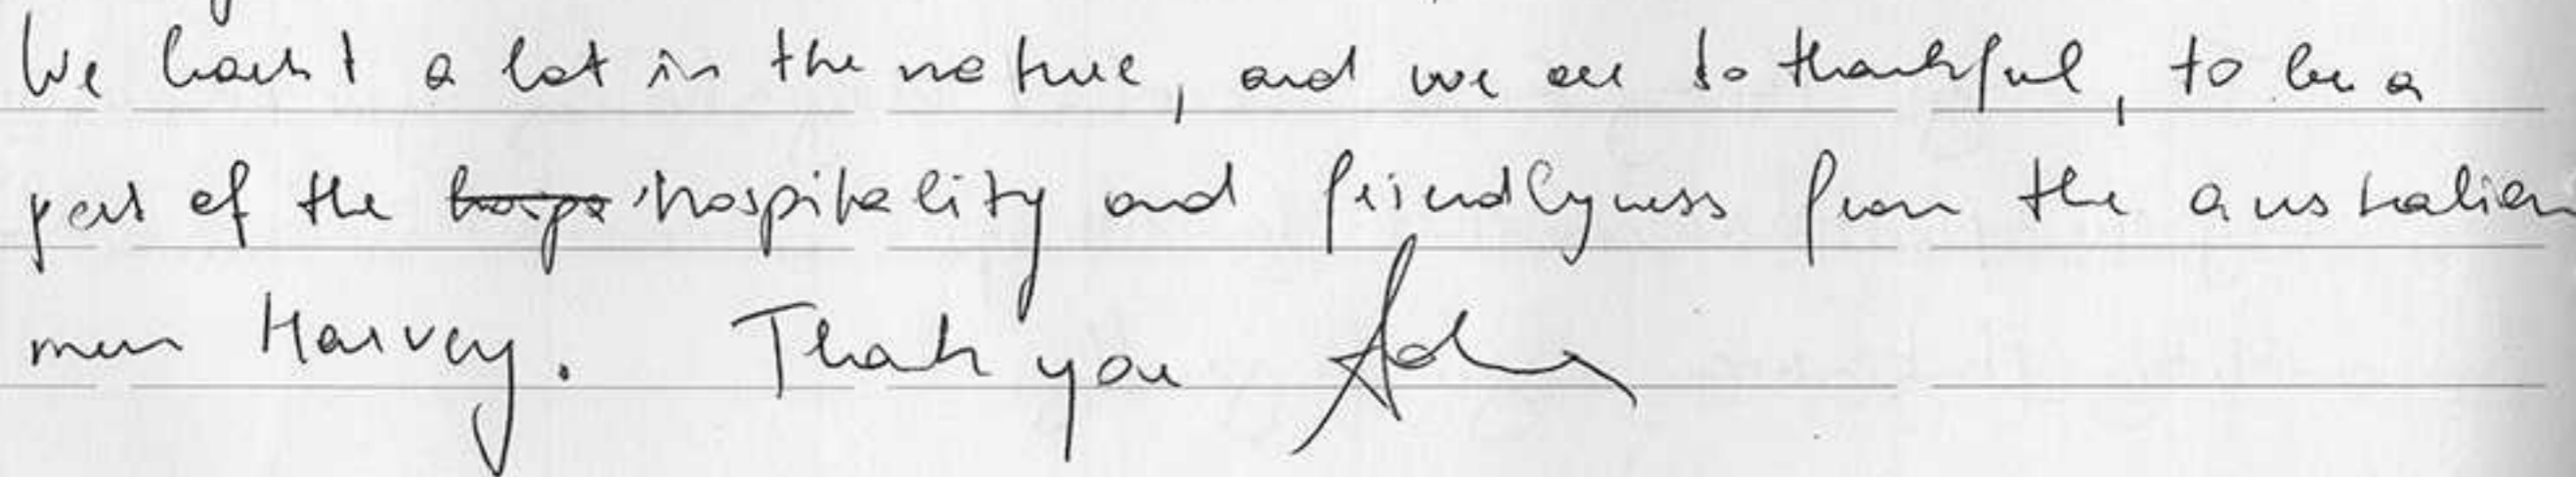 We a lot in the nature, and we are so thankful, to be a
part of the hospitality and friendlyness from the australian
men Harvey. Thank you